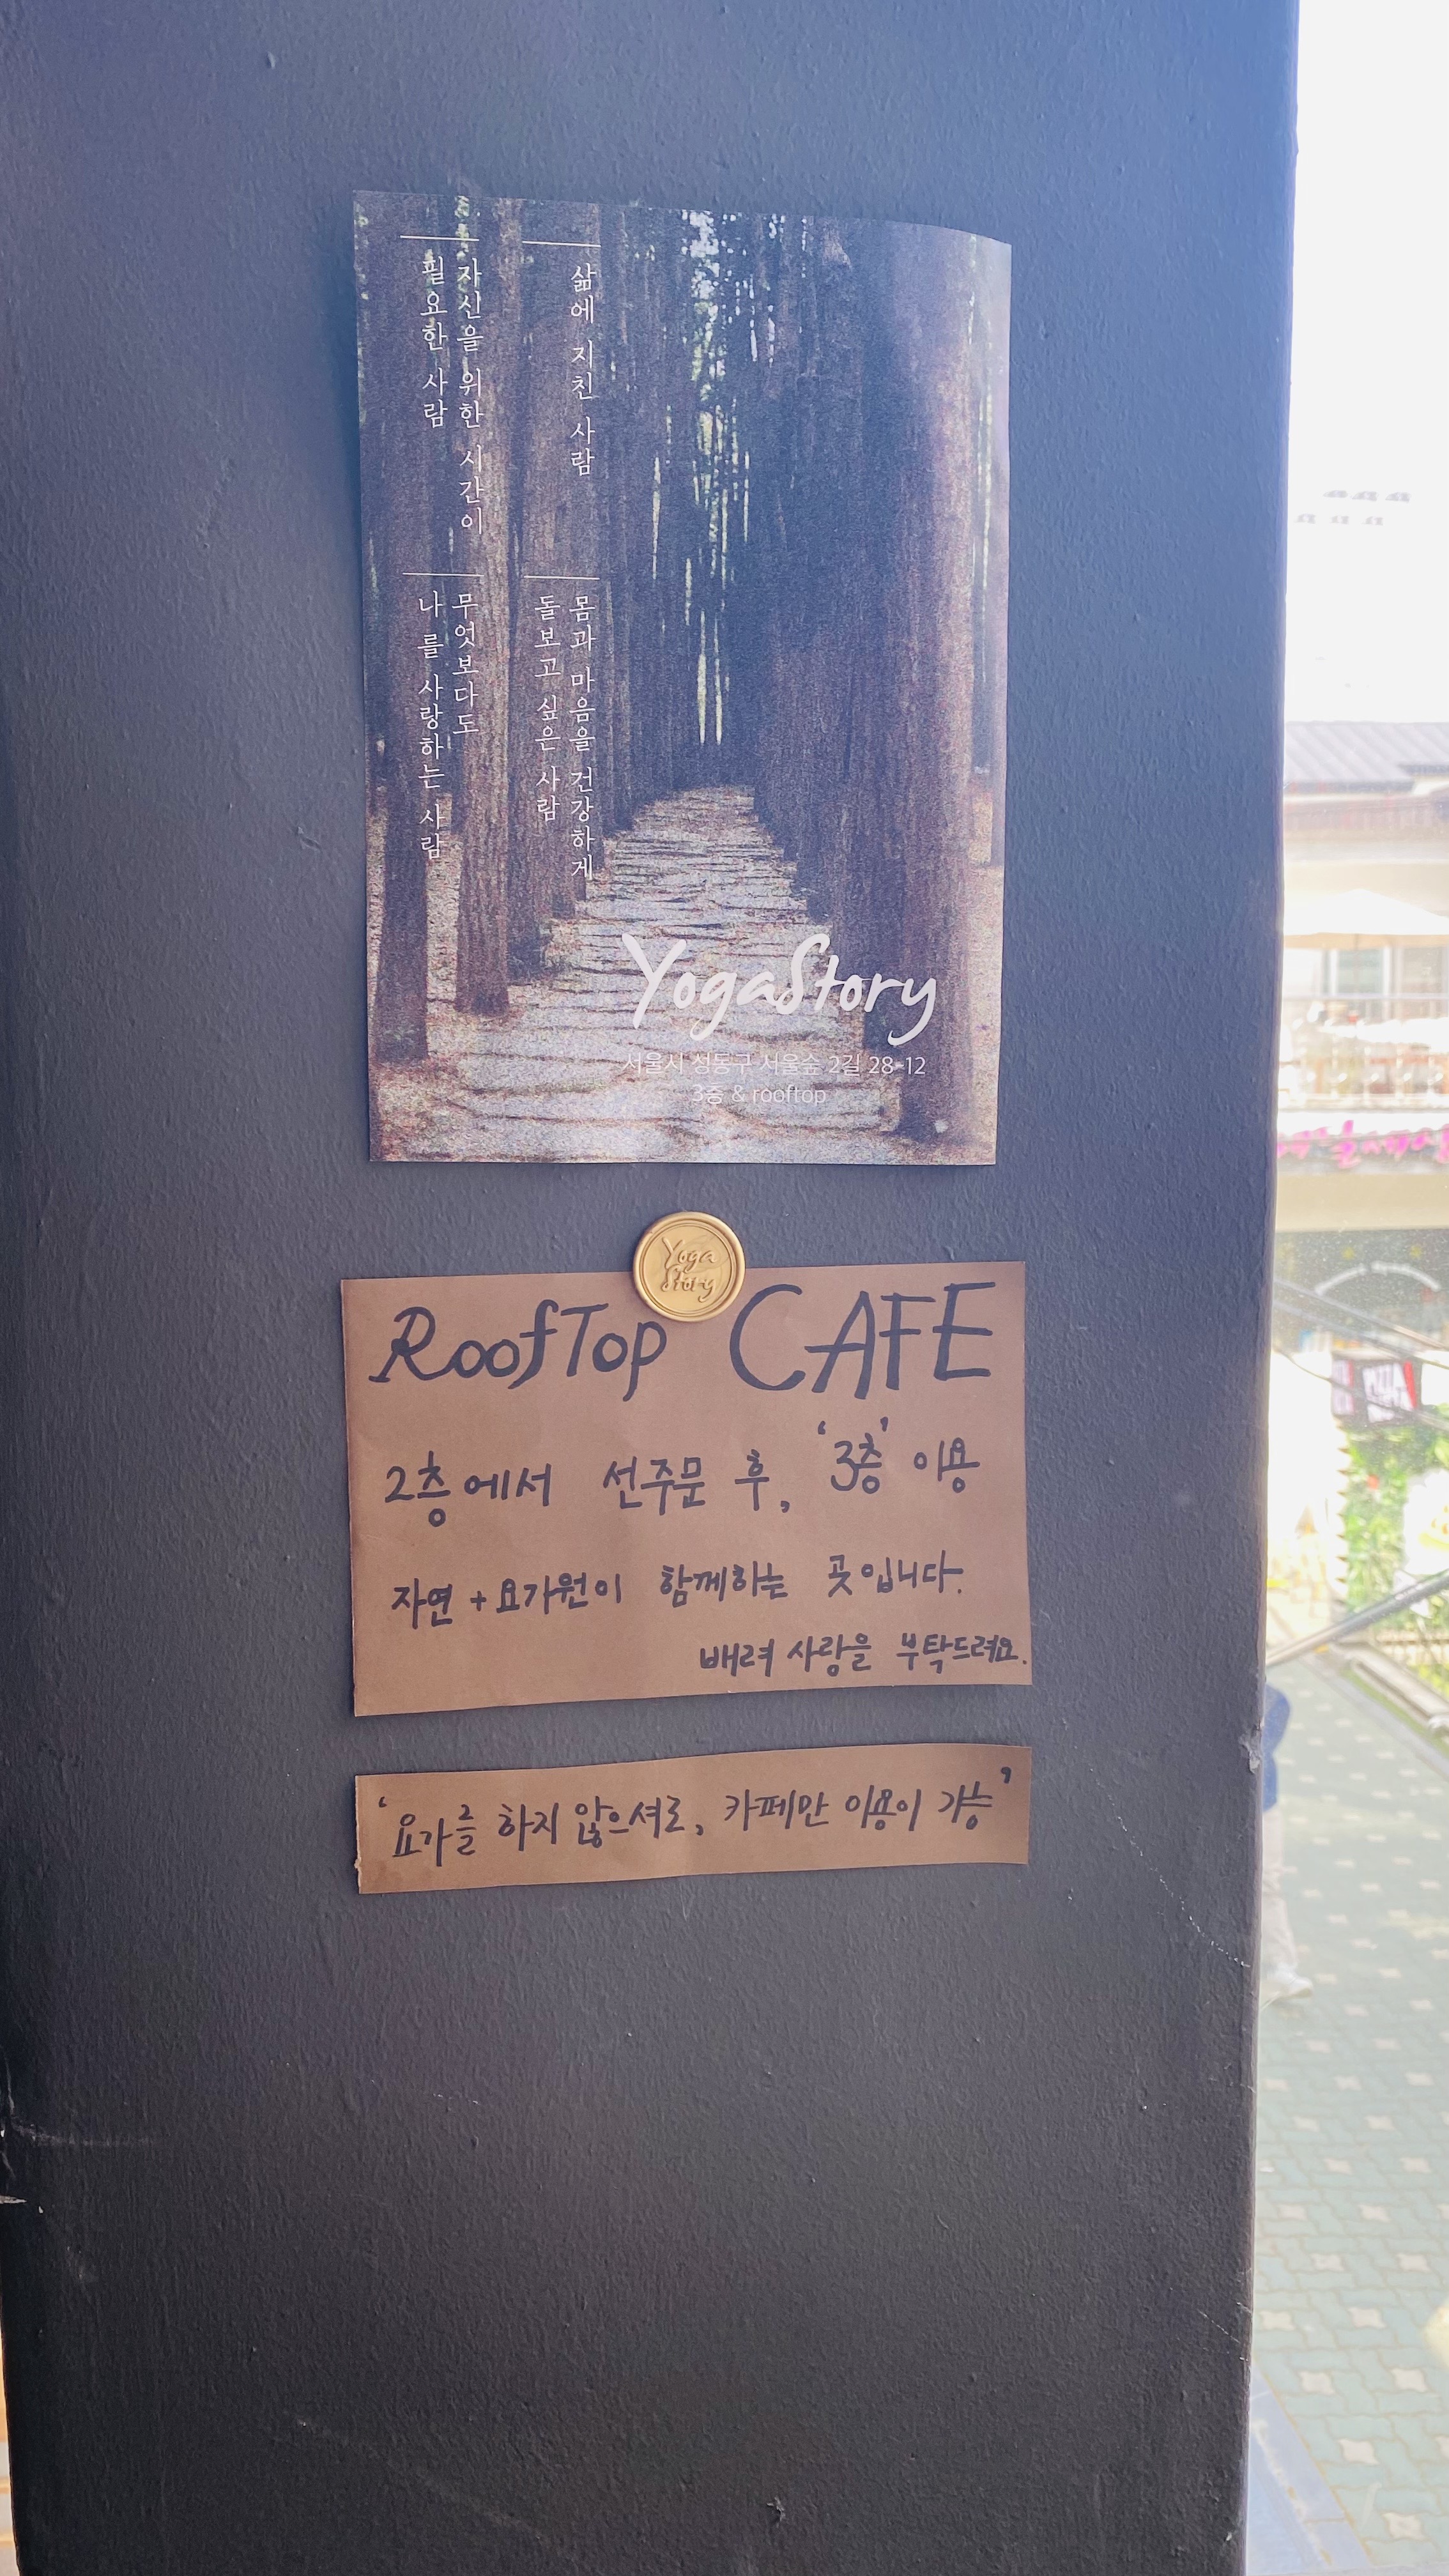 삶에 지친 사람
자신을 위한 시간이
필요한 사람
몸과 마음을 건강하게
돌보고 싶은 사람
무엇보다도
나를 사랑하는 사람
YogaStory
서울시 성동구 서울숲 2길 28-12
3층 & rooftop
Yoga
Story
RoofTop CAFE
2층에서 선주문 후, '3층' 이용
자연 + 요가원이 함께하는 곳입니다.
배려 사랑을 부탁드려요.
'요가를 하지 않으셔로, 카페만 이용이 가능'